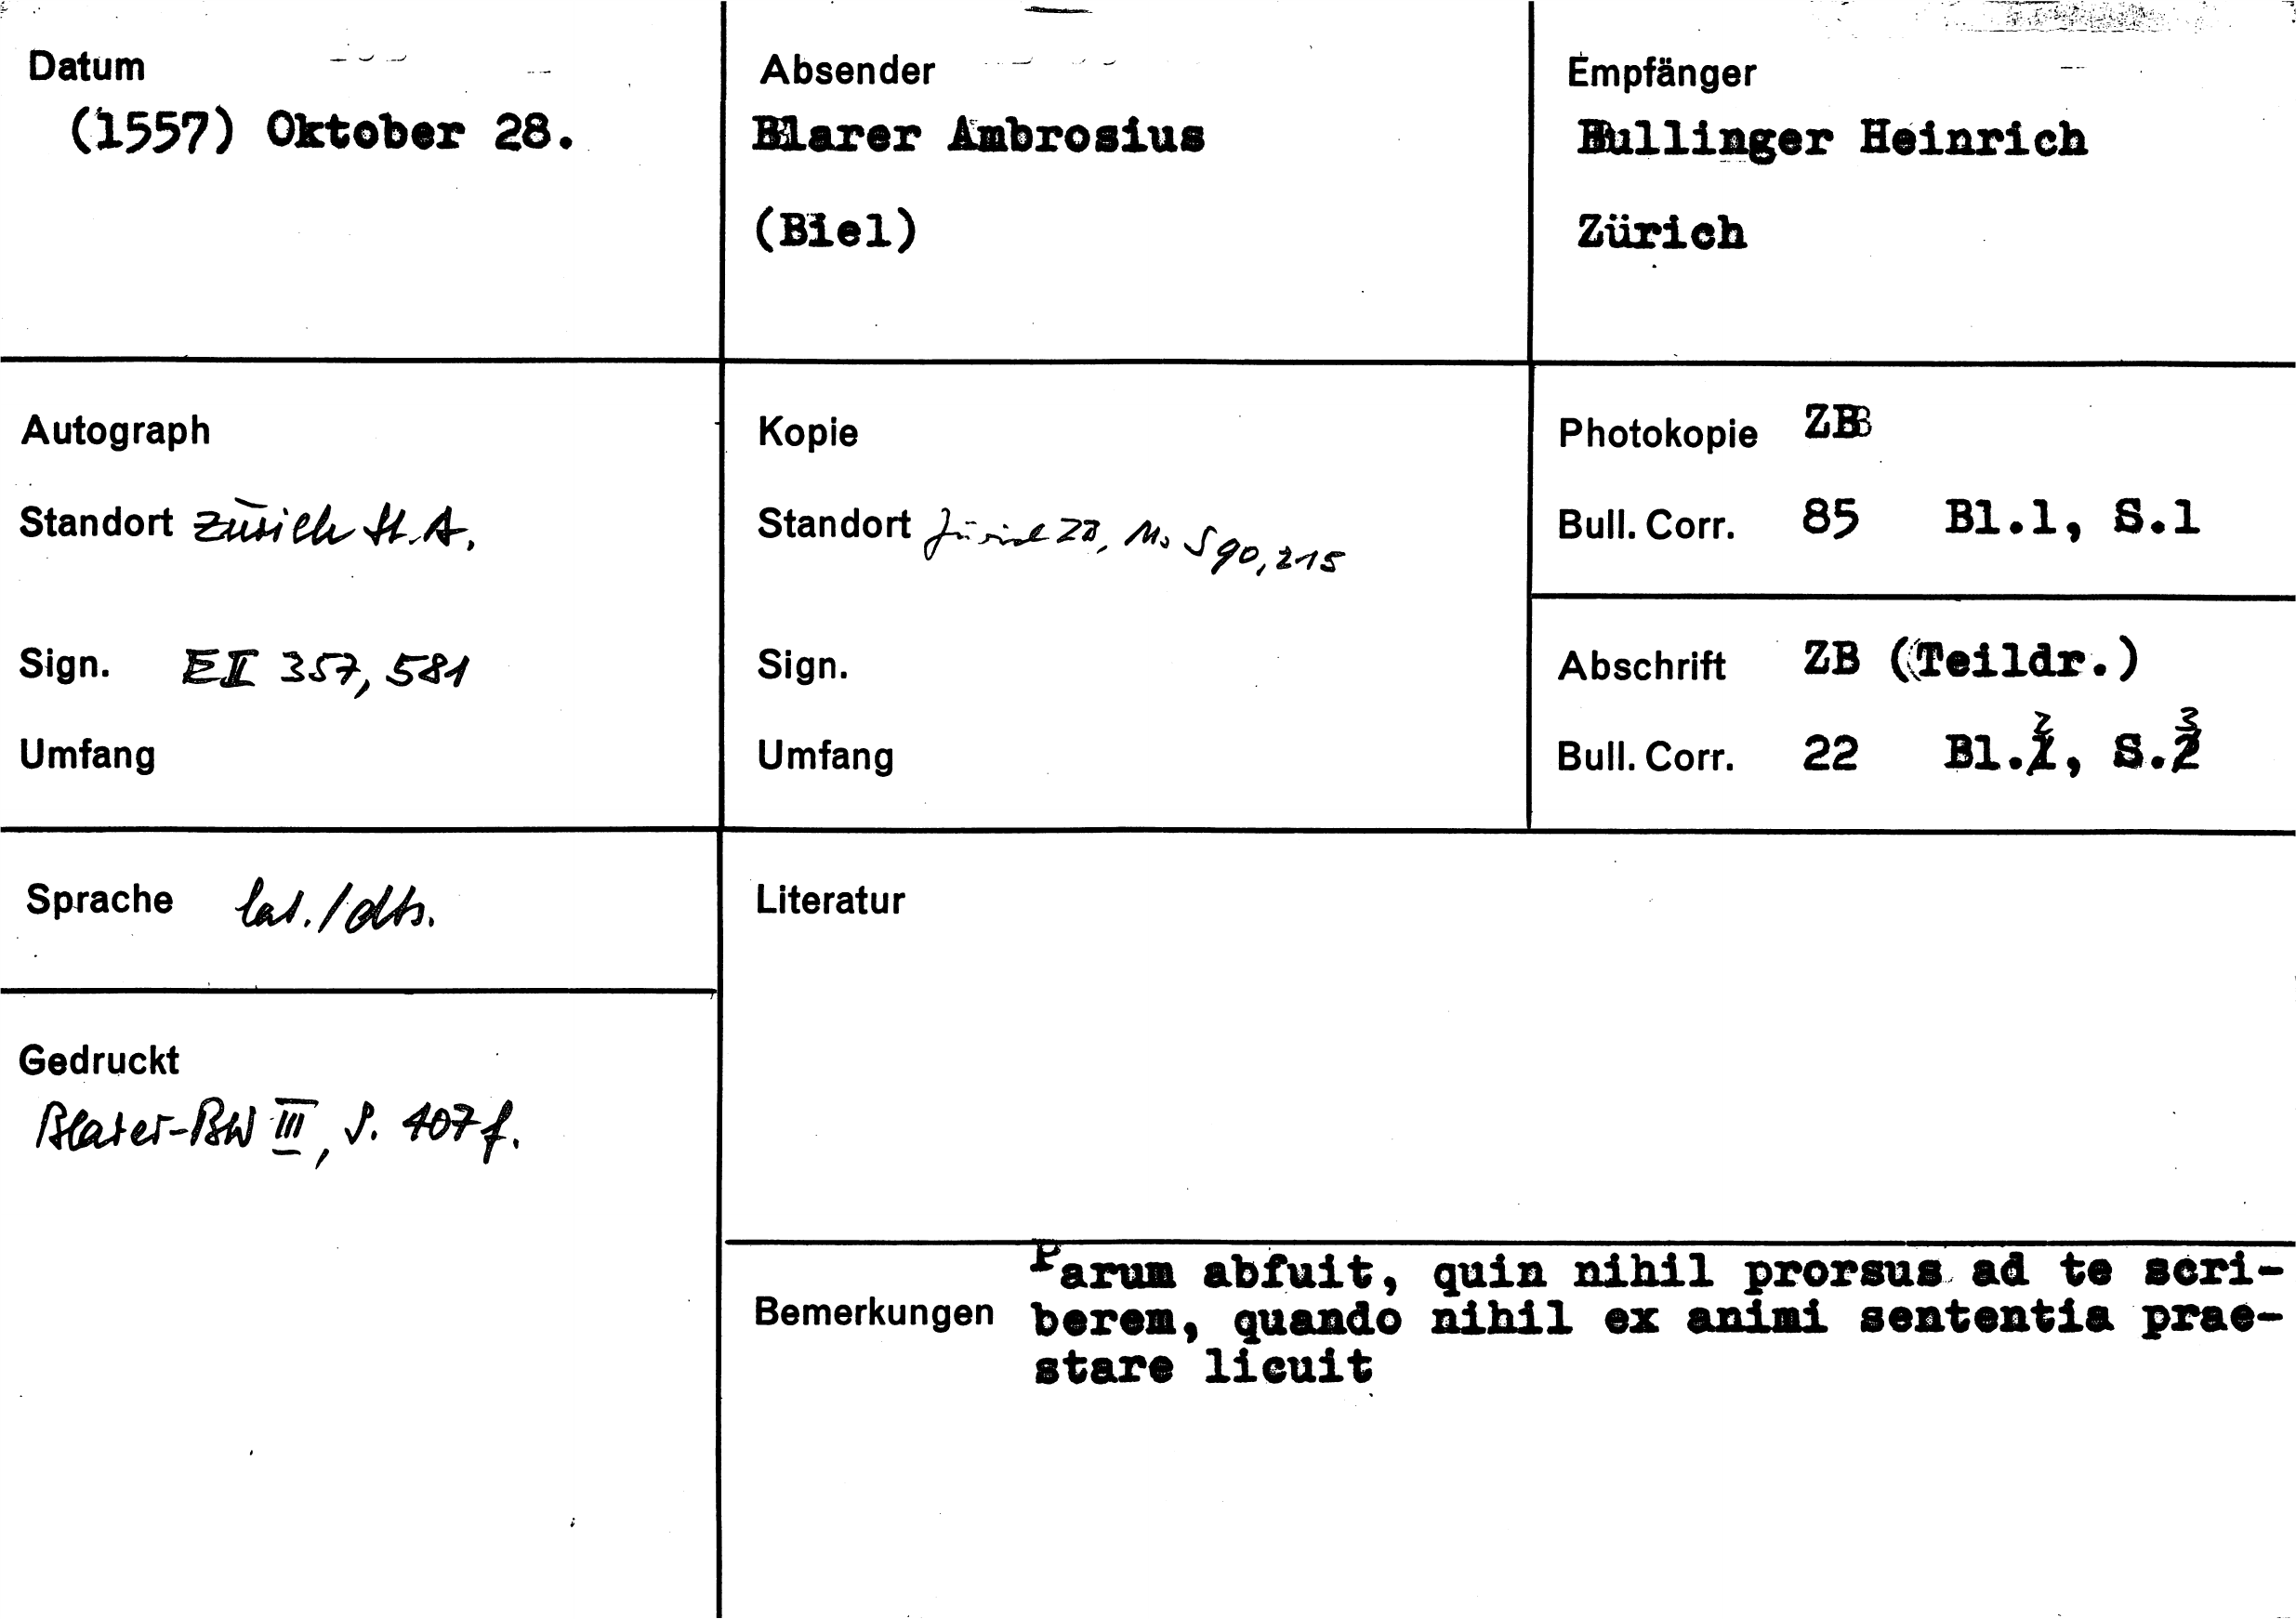 Datum
(1557) Oktober 28.
Absender
Blarer Ambrosius
(Biel)
Empfänger
Bullinger Heinrich
Zürich
Autograph
Standort Zürich St.A.
Sign. EII 357, 581
Umfang
Kopie
Standort Zürich ZB, Ms S 90, 215
Sign.
Umfang
Photokopie ZB
Bull. Corr. 85 Bl.1, S.1
Abschrift ZB (Teildr.)
Bull. Corr. 22 Bl.2, S.3
Sprache lat./dts.
Gedruckt
Blarer-BW III, S. 407 f.
Literatur
Bemerkungen
Parum abfuit, quin nihil prorsus ad te scri-
berem, quando nihil ex animi sententia prae-
stare licuit